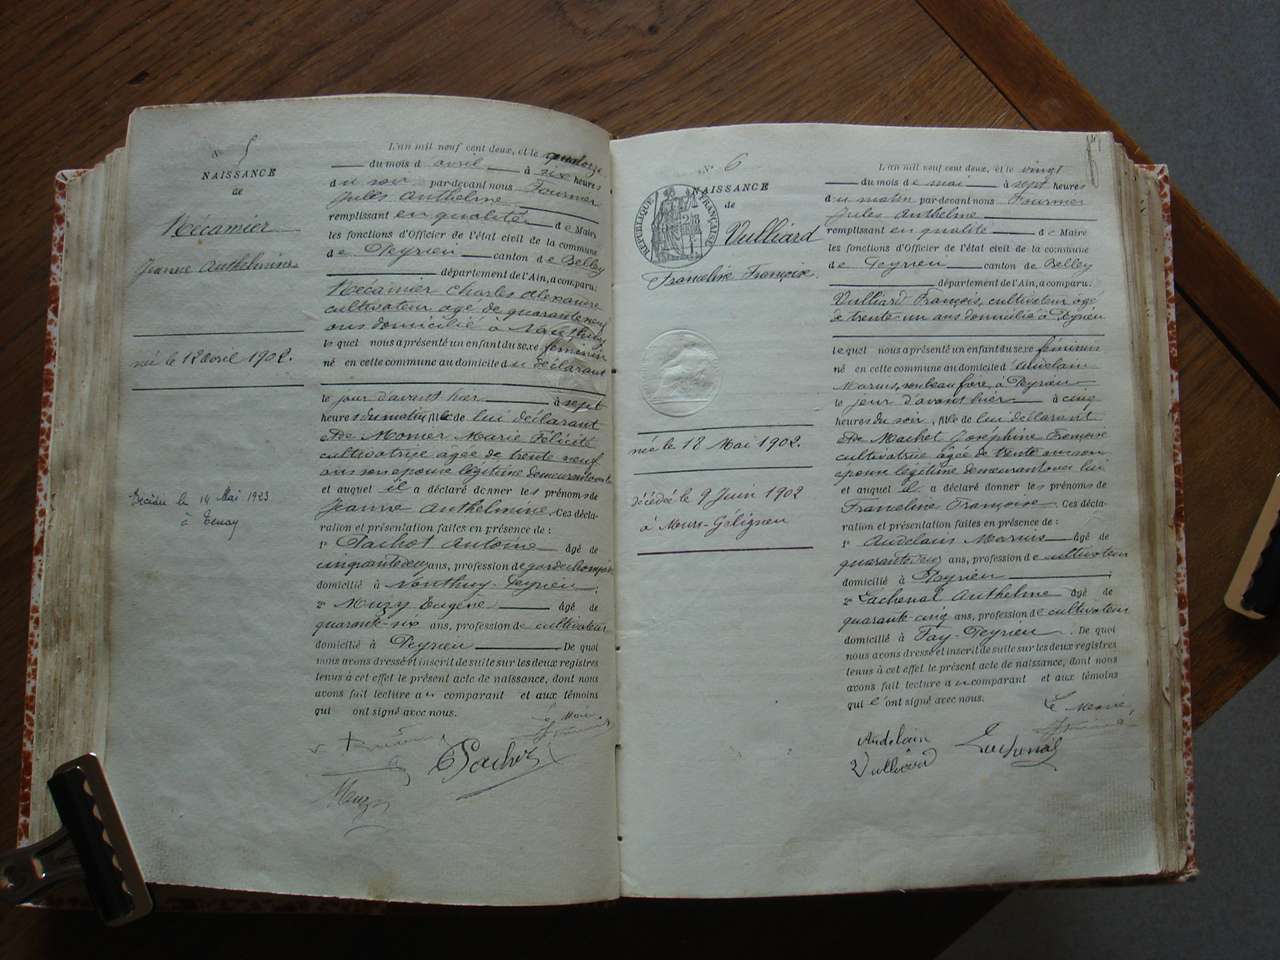 N° 5
NAISSANCE
de
Récamier
Jeanne Anthelmine
née le 12 avril 1902.
Décédée le 14 Mai 1923
à Tenay
L'an mil neuf cent deux, et le quatorze
du mois d'avril à six heures
du soir par-devant nous Fournier
Jules Anthelme
remplissant en qualité de Maire
les fonctions d'Officier de l'état civil de la commune
de Peyrieu canton de Belley
département de l'Ain, a comparu:
Récamier Charles Alexandre
cultivateur âgé de quarante neuf
ans domicilié à
le quel nous a présenté un enfant du sexe féminin
né en cette commune au domicile du déclarant
le jour d'avant hier à sept
heures du matin, fille de lui déclarant
et de Monier Marie Félicité
cultivatrice âgée de trente neuf
ans son épouse légitime demeurant
et auquel il a déclaré donner les prénoms de
Jeanne Anthelmine. Ces décla-
ration et présentation faites en présence de:
1° Pachot Antoine âgé de
cinquante deux ans, profession de garde champêtre
domicilié à Peyrieu;
2° Muzy Eugène âgé de
quarante-six ans, profession de cultivateur
domicilié à Peyrieu De quoi
nous avons dressé et inscrit de suite sur les deux registres
tenus à cet effet le présent acte de naissance, dont nous
avons fait lecture au comparant et aux témoins
qui ont signé avec nous.
Le Maire
Pachot
Muzy
N° 6
NAISSANCE
de
RÉPUBLIQUE FRANÇAISE
Vulliard
Franceline Françoise.
née le 18 Mai 1902.
décédée le 9 Juin 1902
à Murs-Gélignieu
L'an mil neuf cent deux, et le vingt
du mois de mai à sept heures
du matin par-devant nous Fournier
Jules Anthelme
remplissant en qualité de Maire
les fonctions d'Officier de l'état civil de la commune
de Peyrieu canton de Belley
département de l'Ain, a comparu:
Vulliard François, cultivateur âgé
de trente-un ans domicilié à Peyrieu
le quel nous a présenté un enfant du sexe féminin
né en cette commune au domicile d'Audelain
Marius, son beau frère, à Peyrieu
le jour d'avant hier à cinq
heures du soir, fille de lui déclarant
et de Machet Joséphine Françoise
cultivatrice âgée de trente ans son
épouse légitime demeurant avec lui
et auquel il a déclaré donner les prénoms de
Franceline Françoise Ces décla-
ration et présentation faites en présence de:
1° Audelain Marius âgé de
quarante deux ans, profession de cultivateur
domicilié à Peyrieu;
2° Lachenal Anthelme âgé de
quarante-cinq ans, profession de cultivateur
domicilié à Fay-Peyrieu. De quoi
nous avons dressé et inscrit de suite sur les deux registres
tenus à cet effet le présent acte de naissance, dont nous
avons fait lecture au comparant et aux témoins
qui l'ont signé avec nous.
Le Maire,
Audelain
Lachenal
Vulliard